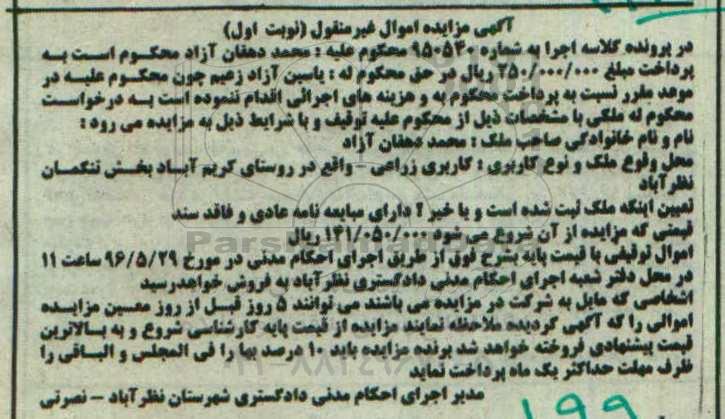 آگهی مزایده اموال غیرمنقول (نوبت اول)
در پرونده کلاسه اجرا به شماره ۹۵۰۵۴۰ محکوم علیه : محمد دهقان آزاد محکوم است به
پرداخت مبلغ ۲۵۰/۰۰۰/۰۰۰ ریال در حق محکوم له : یاسین آزاد زعیم چون محکوم علیه در
موعد مقرر نسبت به پرداخت محکوم به و هزینه های اجرائی اقدام ننموده است به درخواست
محکوم له ملکی با مشخصات ذیل از محکوم علیه توقیف و با شرایط ذیل به مزایده می رود :
نام و نام خانوادگی صاحب ملک : محمد دهقان آزاد
محل وقوع ملک و نوع کاربری : کاربری زراعی - واقع در روستای کریم آباد بخش تنکمان
نظرآباد
تعیین اینکه ملک ثبت شده است و یا خیر ؟ دارای مبایعه نامه عادی و فاقد سند
قیمتی که مزایده از آن شروع می شود ۱۴۱/۰۵۰/۰۰۰ ریال
اموال توقیفی با قیمت پایه بشرح فوق از طریق اجرای احکام مدنی در مورخ ۹۶/۵/۲۹ ساعت ۱۱
در محل دفتر شعبه اجرای احکام مدنی دادگستری نظرآباد به فروش خواهدرسید
اشخاصی که مایل به شرکت در مزایده می باشند می توانند ۵ روز قبل از روز معین مزایده
اموالی را که آگهی گردیده ملاحظه نمایند مزایده از قیمت پایه کارشناسی شروع و به بالاترین
قیمت پیشنهادی فروخته خواهد شد برنده مزایده باید ۱۰ درصد بها را فی المجلس و الباقی را
ظرف مهلت حداکثر یک ماه پرداخت نماید
مدیر اجرای احکام مدنی دادگستری شهرستان نظرآباد - نصرتی
۱۹۹